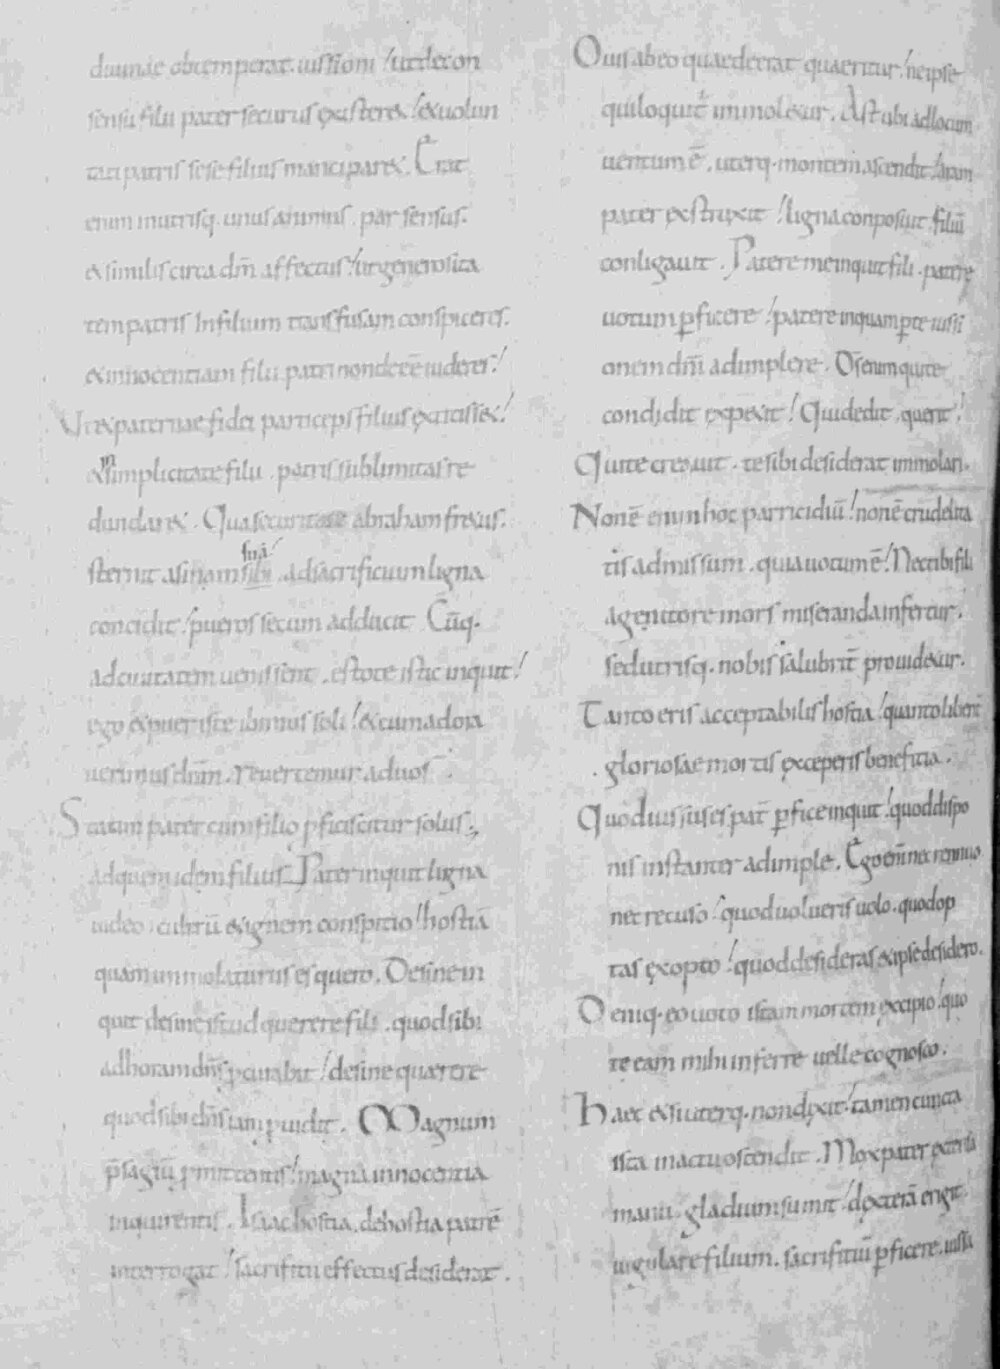 diuinae obtemperat iussioni ut de con
sensu filii pater securus existeret et uolun
tati patris sese filius manciparet. Erat
enim in utrisq. unus animus. par sensus.
et similis circa dm̄ affectus ut generosita
tem patris In filium transfusam conspiceres.
et innocentiam filii patri non deeē uideres.
Ut et paternae fidei particeps filius extitisset.
et in simplicitate filii. patris sublimitas re
dundaret. Qua securitate abraham fretus.
suā
sternit asinam sibi. ad sacrificium ligna
concidit pueros secum adducit. Cūq.
ad ciuitatem uenissent. estote istic inquit
ego et puer iste ibimus soli et cum adora
uerimus dnm̄. reuertemur ad uos.
Statim pater cum filio pficiscitur solus.
ad quem idem filius. Pater inquit ligna
uideo. cultrū et ignem conspicio hostiā
quam immolaturus es quero. Desine in
quit desine istud querere fili. quod sibi
ad horam dns̄ pcurabit desine quaerere
quod sibi dns̄ iam puidit. Magnum
p̄sagiū pmittentis magna innocentia
inquirentis. Isaac hostia. de hostia patrē
interrogat sacrifitii effectus desiderat.
Ouis ab eo quae deerat quaeritur ne ipse
qui loquit̄ immoletur. Ast ubi ad locum
uentum ē. uterq. montem ascendit aram
pater exstruxit ligna conposuit filiū
conligauit. Patere me inquit fili. patere
uotum pficere patere inquam p te iussi
onem dn̄i adimplere. Os enim qui te
condidit expetit Qui dedit. querit
Qui te creauit. te sibi desiderat immolari.
Non ē enim hoc parricidiū non ē crudelita
tis admissum. quia uotum ē Nec tibi fili
a genitore mors miseranda infertur.
sed utrisq. nobis salubrit̄ prouidetur.
Tanto eris acceptabilis hostia quanto libent̄
gloriosae mortis exceperis benefitia.
Quod iussus es pat̄ pfice inquit quod dispo
nis instanter adimple. Ego eni̅ nec rennuo
nec recuso quod uolueris uolo. quod op
tas exopto quod desideras et ipse desidero.
Deniq. eo uoto istam mortem excipio quo
te eam mihi inferre uelle cognosco.
Haec etsi uterq. non dixit tamen cuncta
ista in actu ostendit. Mox pater extenta
manu gladium sumit dexterā erigit
iugulare filium. sacrifitiū pficere. iussa